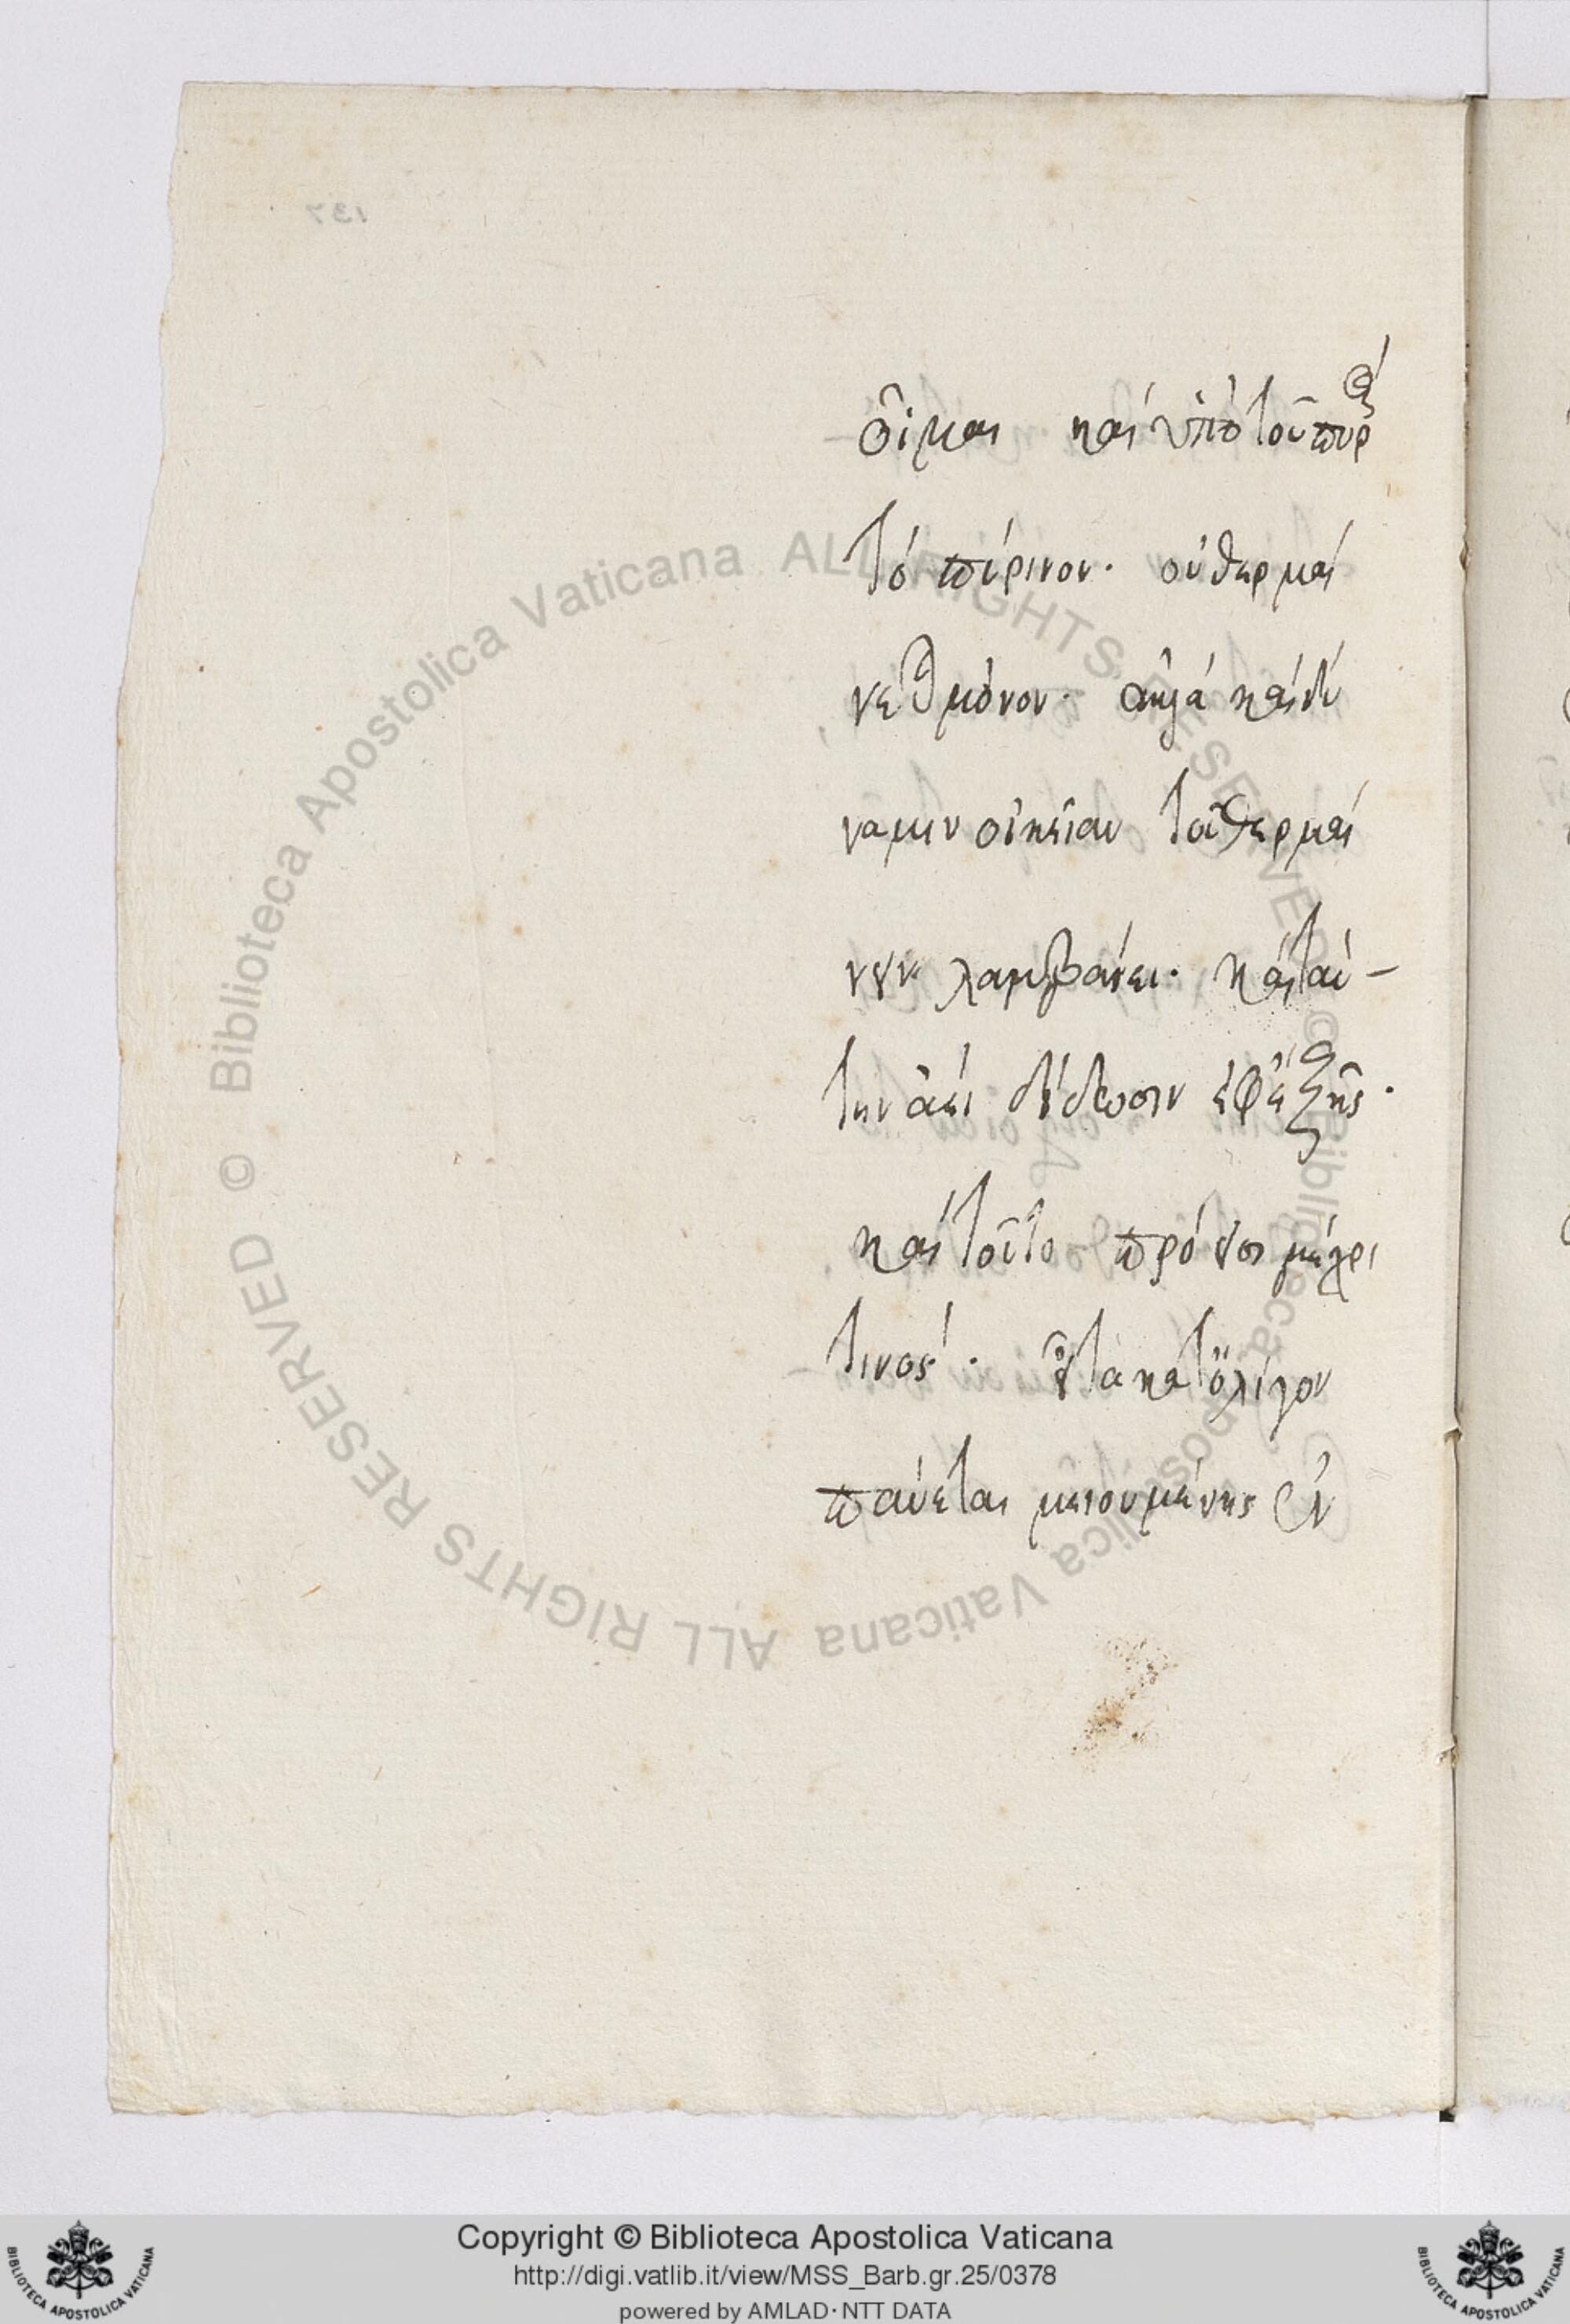 137
οἶμαι καὶ ὑπὸ τοῦ πυρὸς
τὸ πύρινον· οὐ θερμαί
νεται μόνον· ἀλλὰ καὶ δύ
ναμιν οἰκείαν τοῦ θερμαί
νειν λαμβάνει· καὶ ταύ-
την ἀεὶ δίδωσιν ἐφεξῆς·
καὶ τοῦτο πρόεισι μέχρι
τινός· εἶτα κατ' ὀλίγον
παύεται μειουμένης ἐν
© Biblioteca Apostolica Vaticana ALL RIGHTS RESERVED © Biblioteca Apostolica Vaticana ALL RIGHTS RESERVED
Copyright © Biblioteca Apostolica Vaticana
http://digi.vatlib.it/view/MSS_Barb.gr.25/0378
powered by AMLAD·NTT DATA
BIBLIOTECA APOSTOLICA VATICANA
BIBLIOTECA APOSTOLICA VATICANA